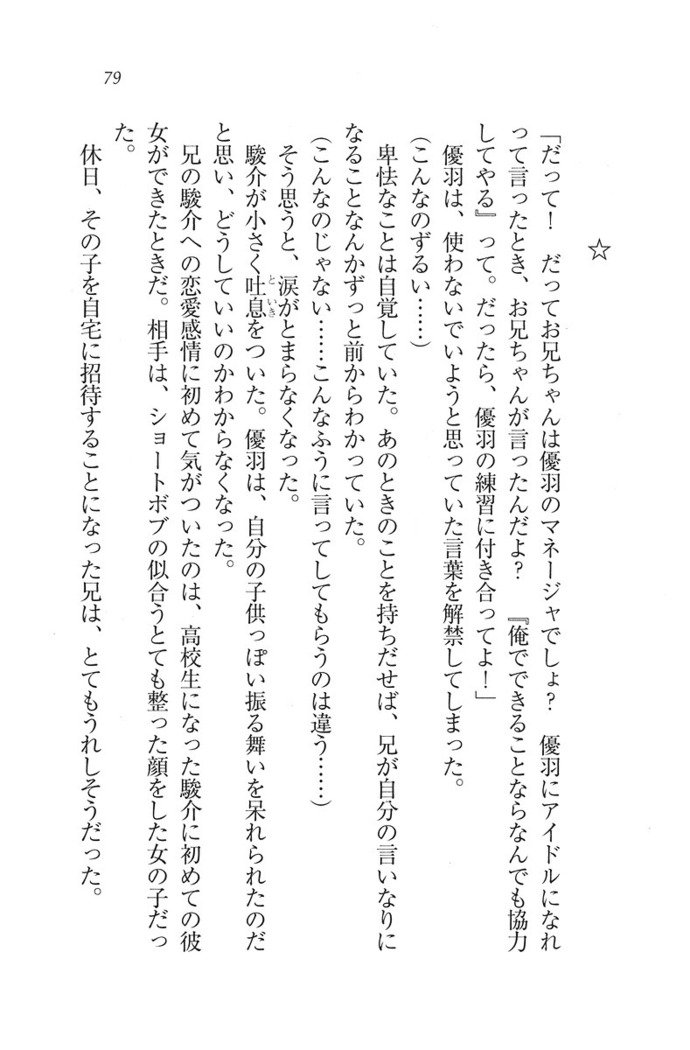 79
☆
「だって！　だってお兄ちゃんは優羽のマネージャでしょ？　優羽にアイドルになれ
って言ったとき、お兄ちゃんが言ったんだよ？　『俺でできることならなんでも協力
してやる』って。だったら、優羽の練習に付き合ってよ！」
優羽は、使わないでいようと思っていた言葉を解禁してしまった。
（こんなのずるい……）
卑怯なことは自覚していた。あのときのことを持ちだせば、兄が自分の言いなりに
なることなんかずっと前からわかっていた。
（こんなのじゃない……こんなふうに言ってしてもらうのは違う……）
そう思うと、涙がとまらなくなった。
駿介が小さく吐息といきをついた。優羽は、自分の子供っぽい振る舞いを呆れられたのだ
と思い、どうしていいのかわからなくなった。
兄の駿介への恋愛感情に初めて気がついたのは、高校生になった駿介に初めての彼
女ができたときだ。相手は、ショートボブの似合うとても整った顔をした女の子だっ
た。
休日、その子を自宅に招待することになった兄は、とてもうれしそうだった。